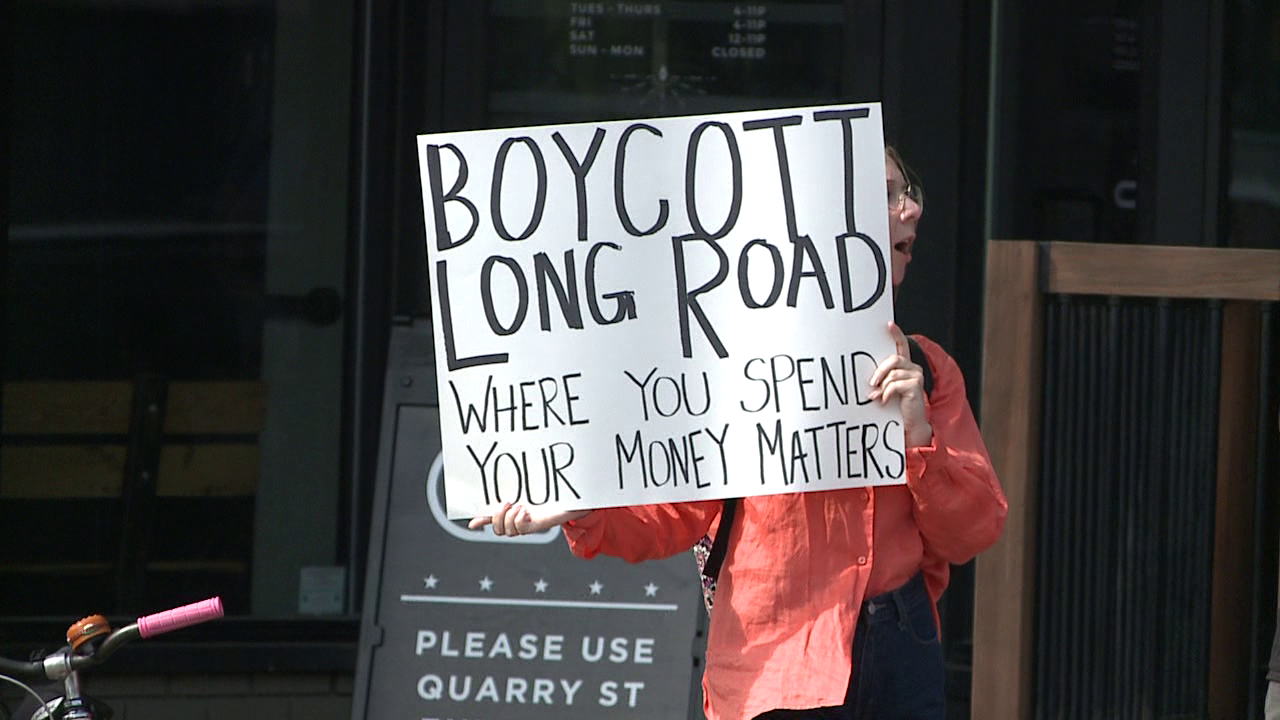 TUES - THURS 4-11P
FRI 4-11P
SAT 12-11P
SUN - MON CLOSED
BOYCOTT
LONG ROAD
WHERE YOU SPEND
YOUR MONEY MATTERS
PLEASE USE
QUARRY ST